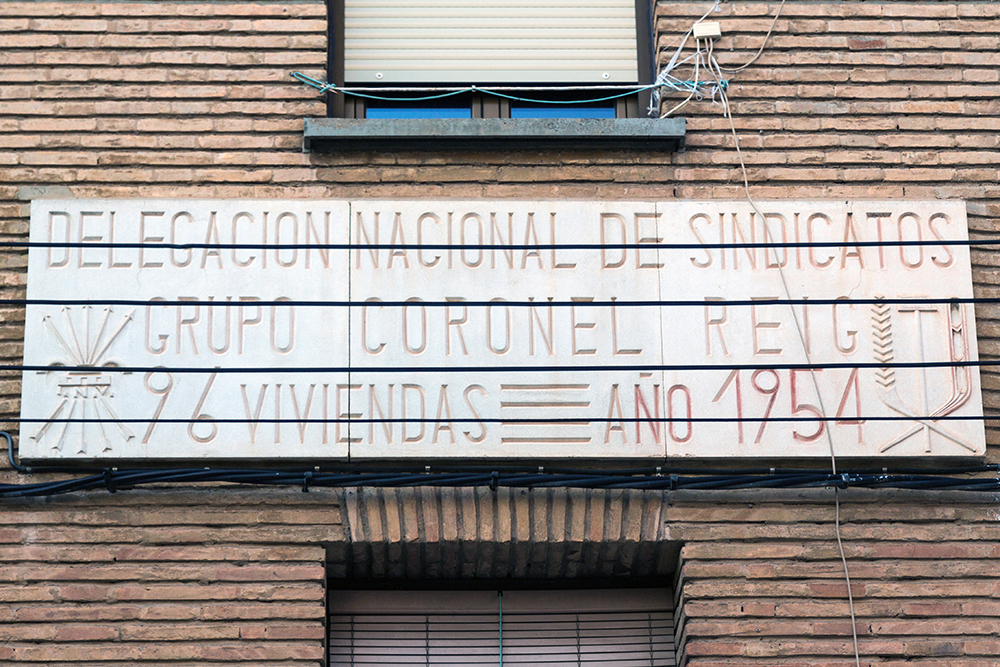 DELEGACION NACIONAL DE SINDICATOS
GRUPO CORONEL REIG
96 VIVIENDAS AÑO 1954